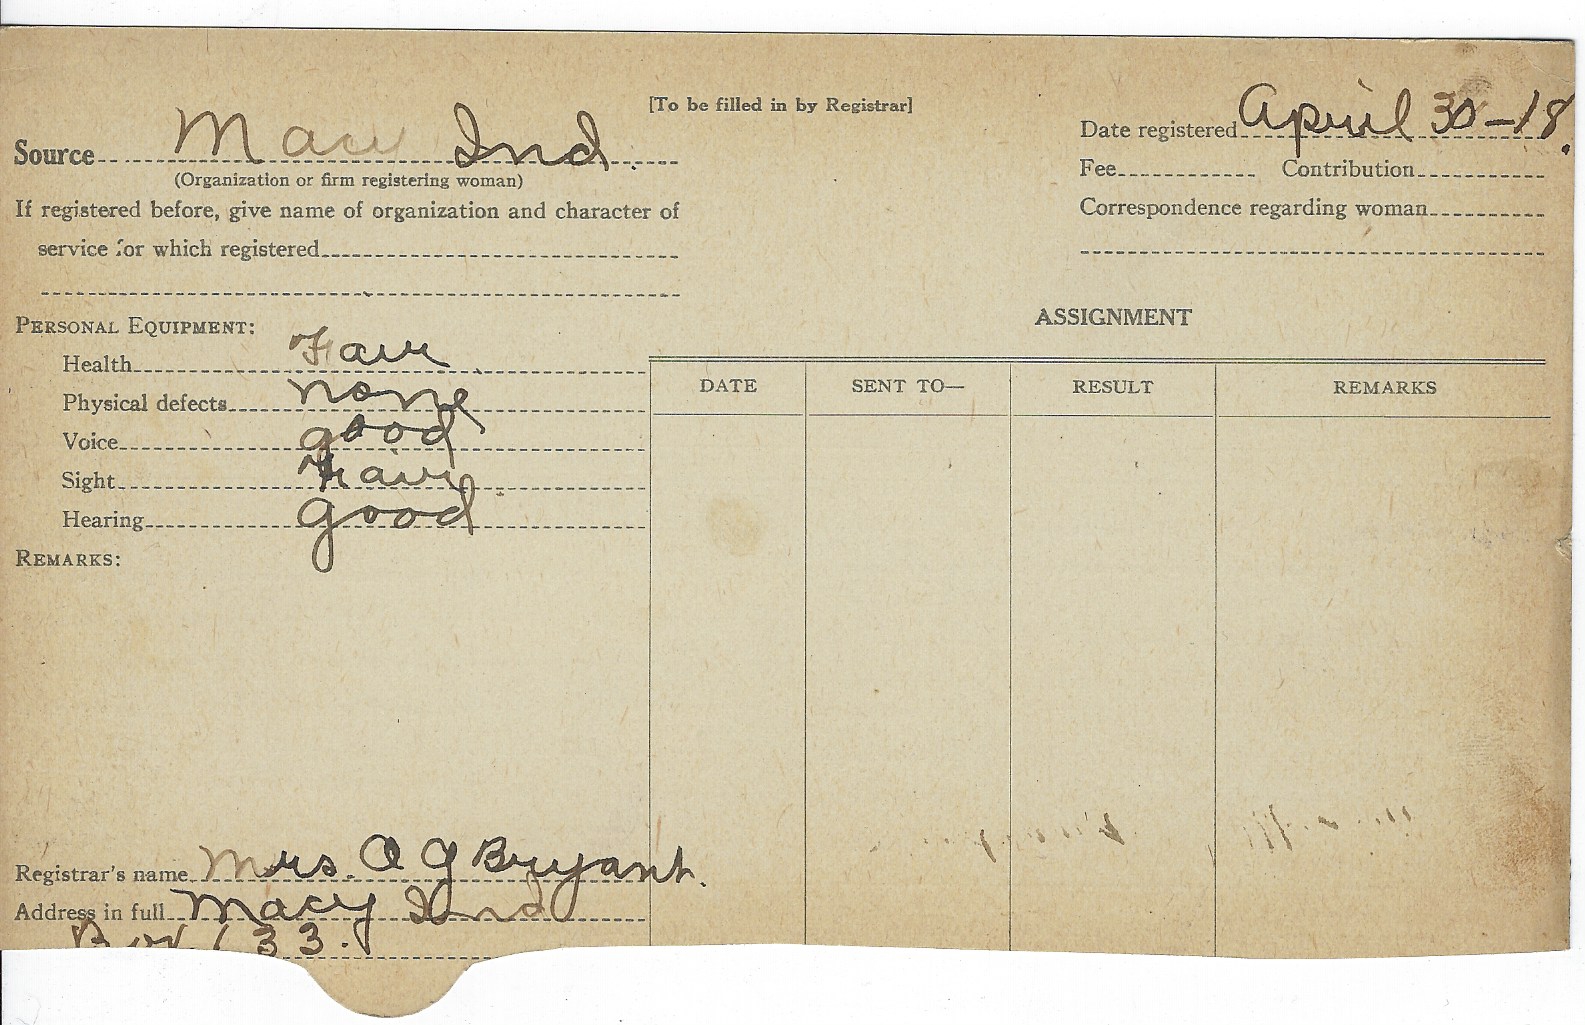 [To be filled in by Registrar]
Source Macy Ind.
(Organization or firm registering woman)
If registered before, give name of organization and character of
service for which registered
Date registered April 30-18.
Fee Contribution
Correspondence regarding woman
PERSONAL EQUIPMENT:
Health Fair
Physical defects none
Voice good
Sight Fair
Hearing good
REMARKS:
ASSIGNMENT
DATE SENT TO— RESULT REMARKS
Registrar's name Mrs. O G Bryant.
Address in full Macy Ind
Box 133.